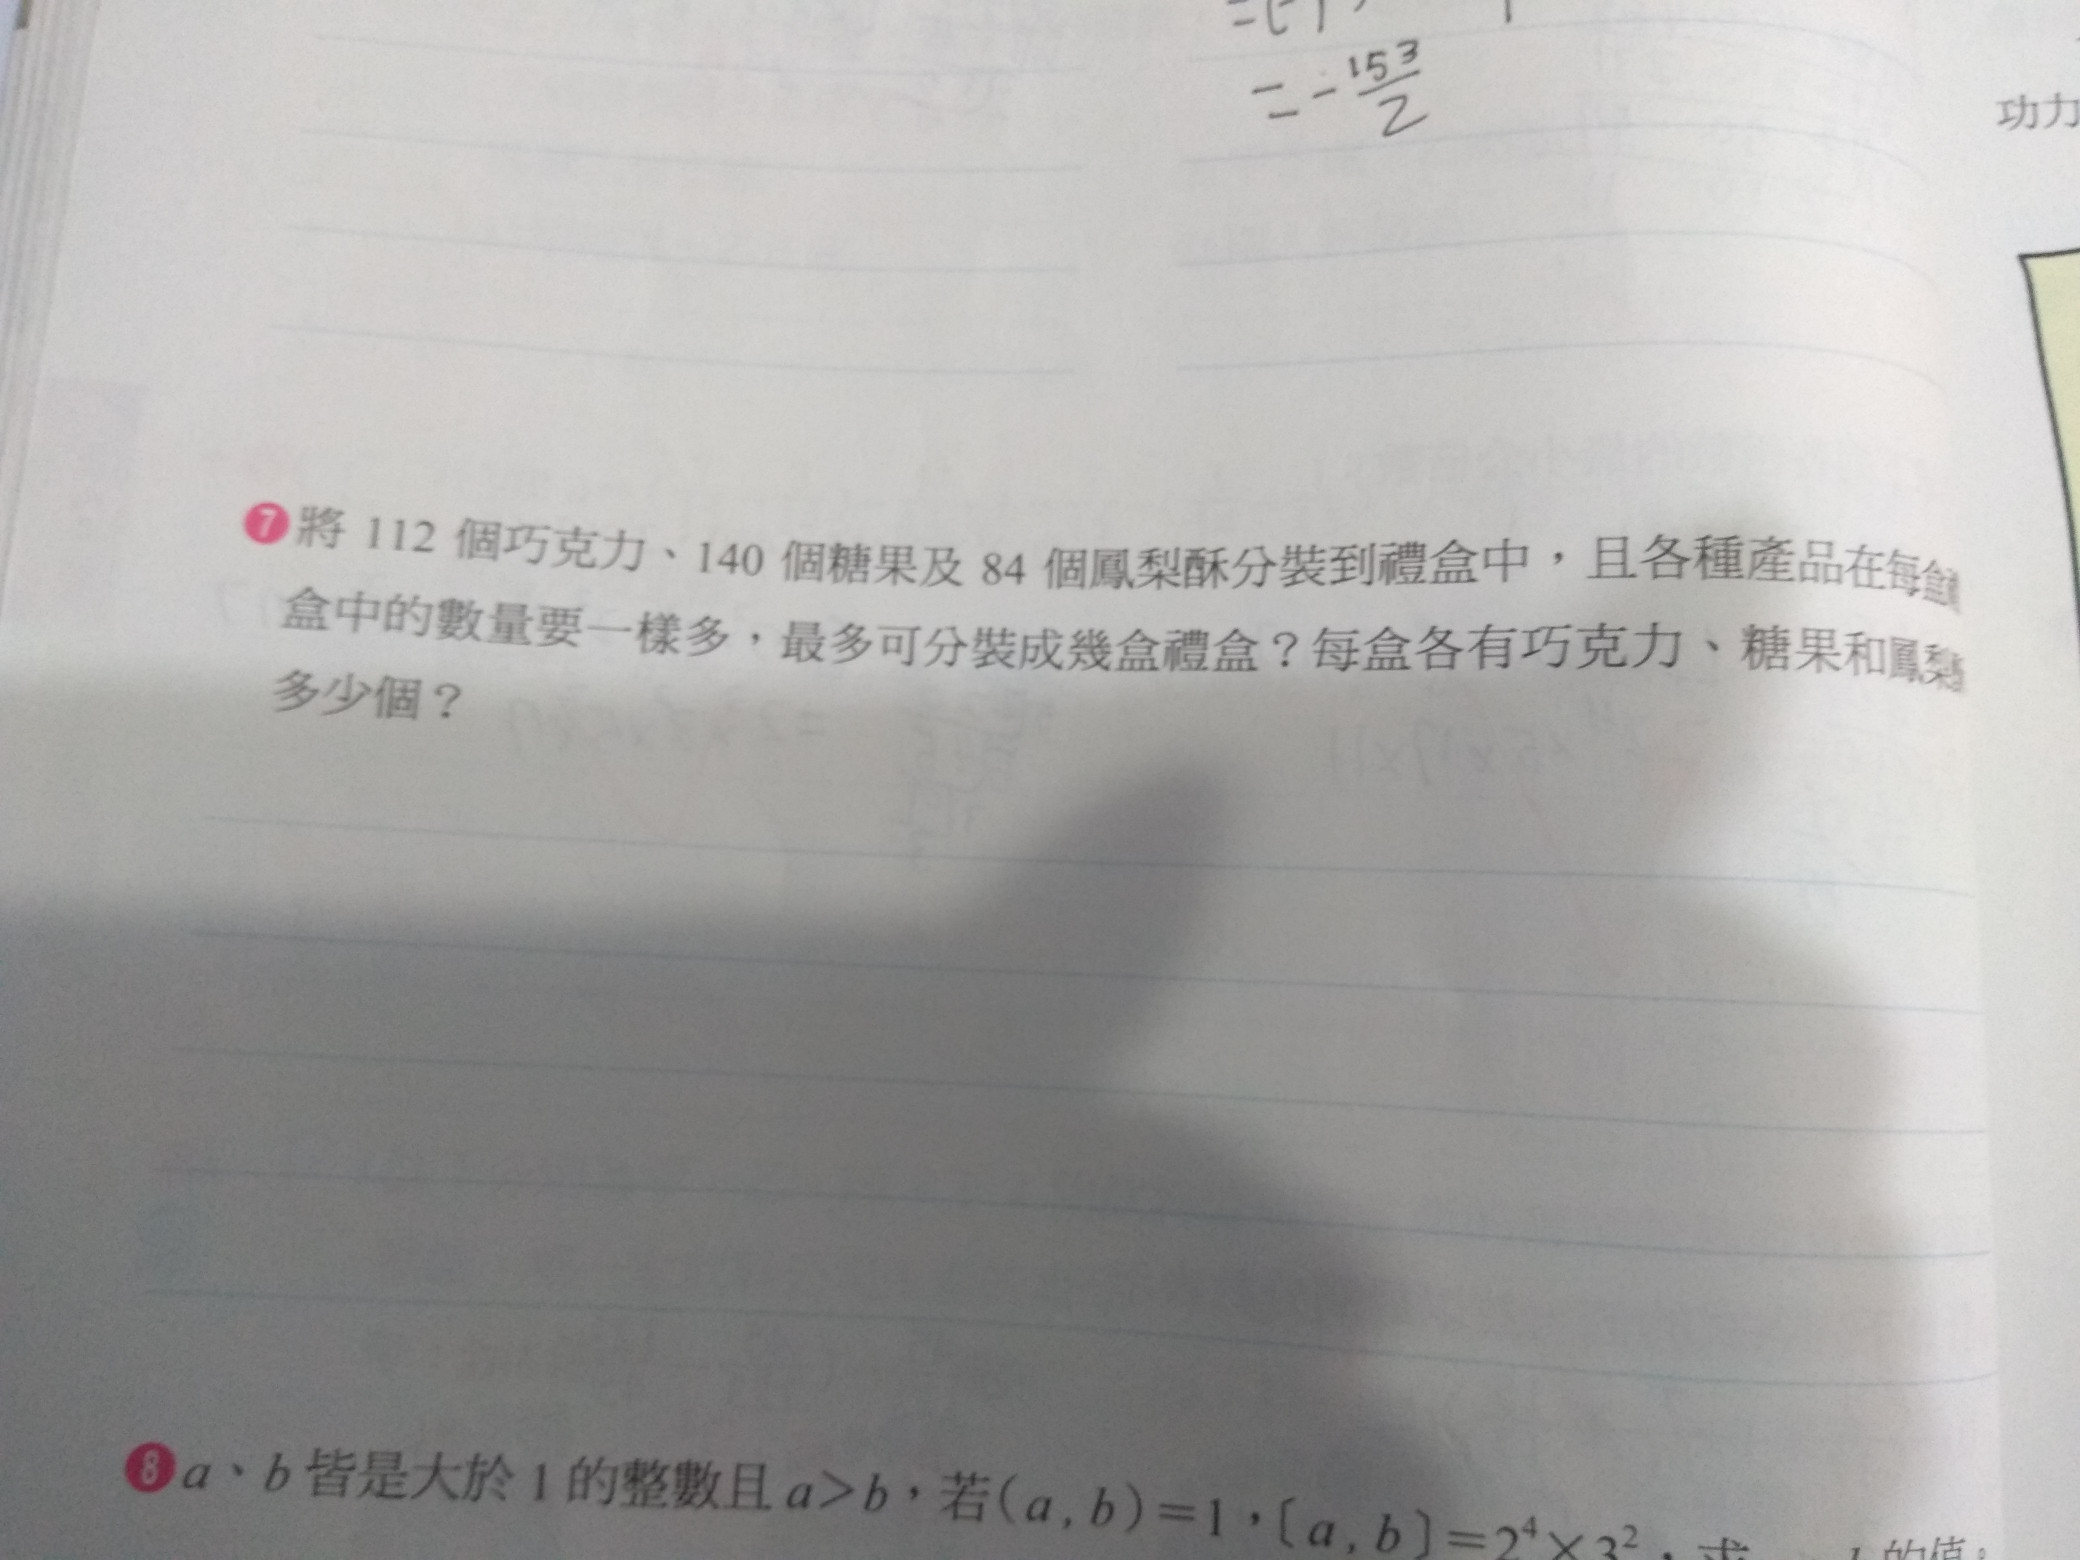 = - 153/2
功力
7 將 112 個巧克力、140 個糖果及 84 個鳳梨酥分裝到禮盒中，且各種產品在每
盒中的數量要一樣多，最多可分裝成幾盒禮盒？每盒各有巧克力、糖果和鳳梨
多少個？
8 a、b 皆是大於 1 的整數且 a>b，若(a, b)=1，〔a, b〕=2⁴×3²，求 的值